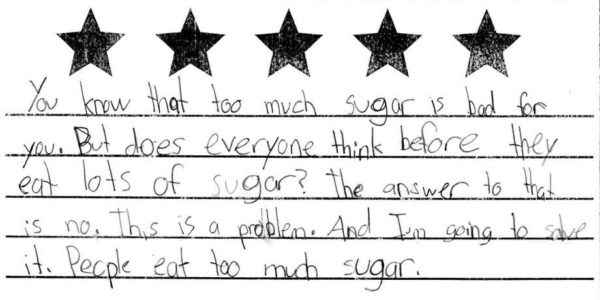 You know that too much sugar is bad for
you. But does everyone think before they
eat lots of sugar? The answer to that
is no. This is a problem. And I'm going to solve
it. People eat too much sugar.